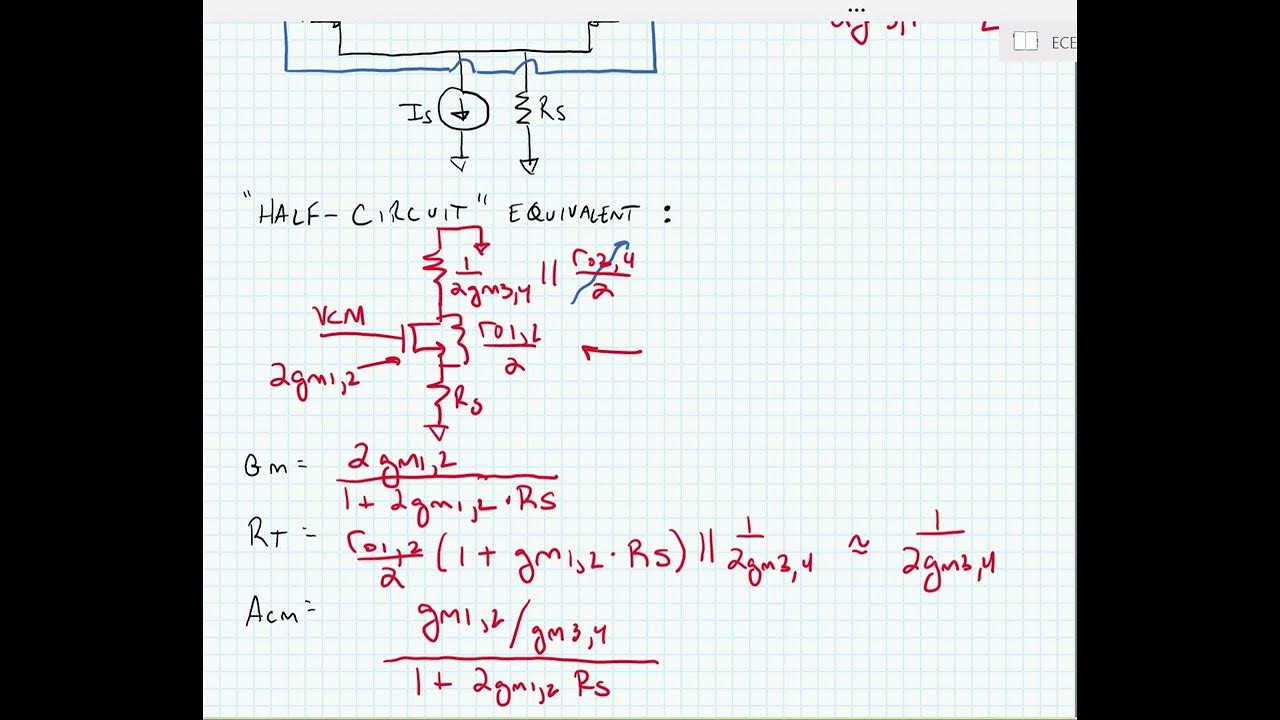 ...
ECE
Is
Rs
"HALF-CIRCUIT" EQUIVALENT :
1/2gm3,4 || ro2,4/2
VCM
ro1,2/2
2gm1,2
Rs
Gm= 2gm1,2/1+2gm1,2·Rs
RT= ro1,2/2 (1+gm1,2·Rs) || 1/2gm3,4 ≈ 1/2gm3,4
Acm= gm1,2/gm3,4/1+2gm1,2 Rs